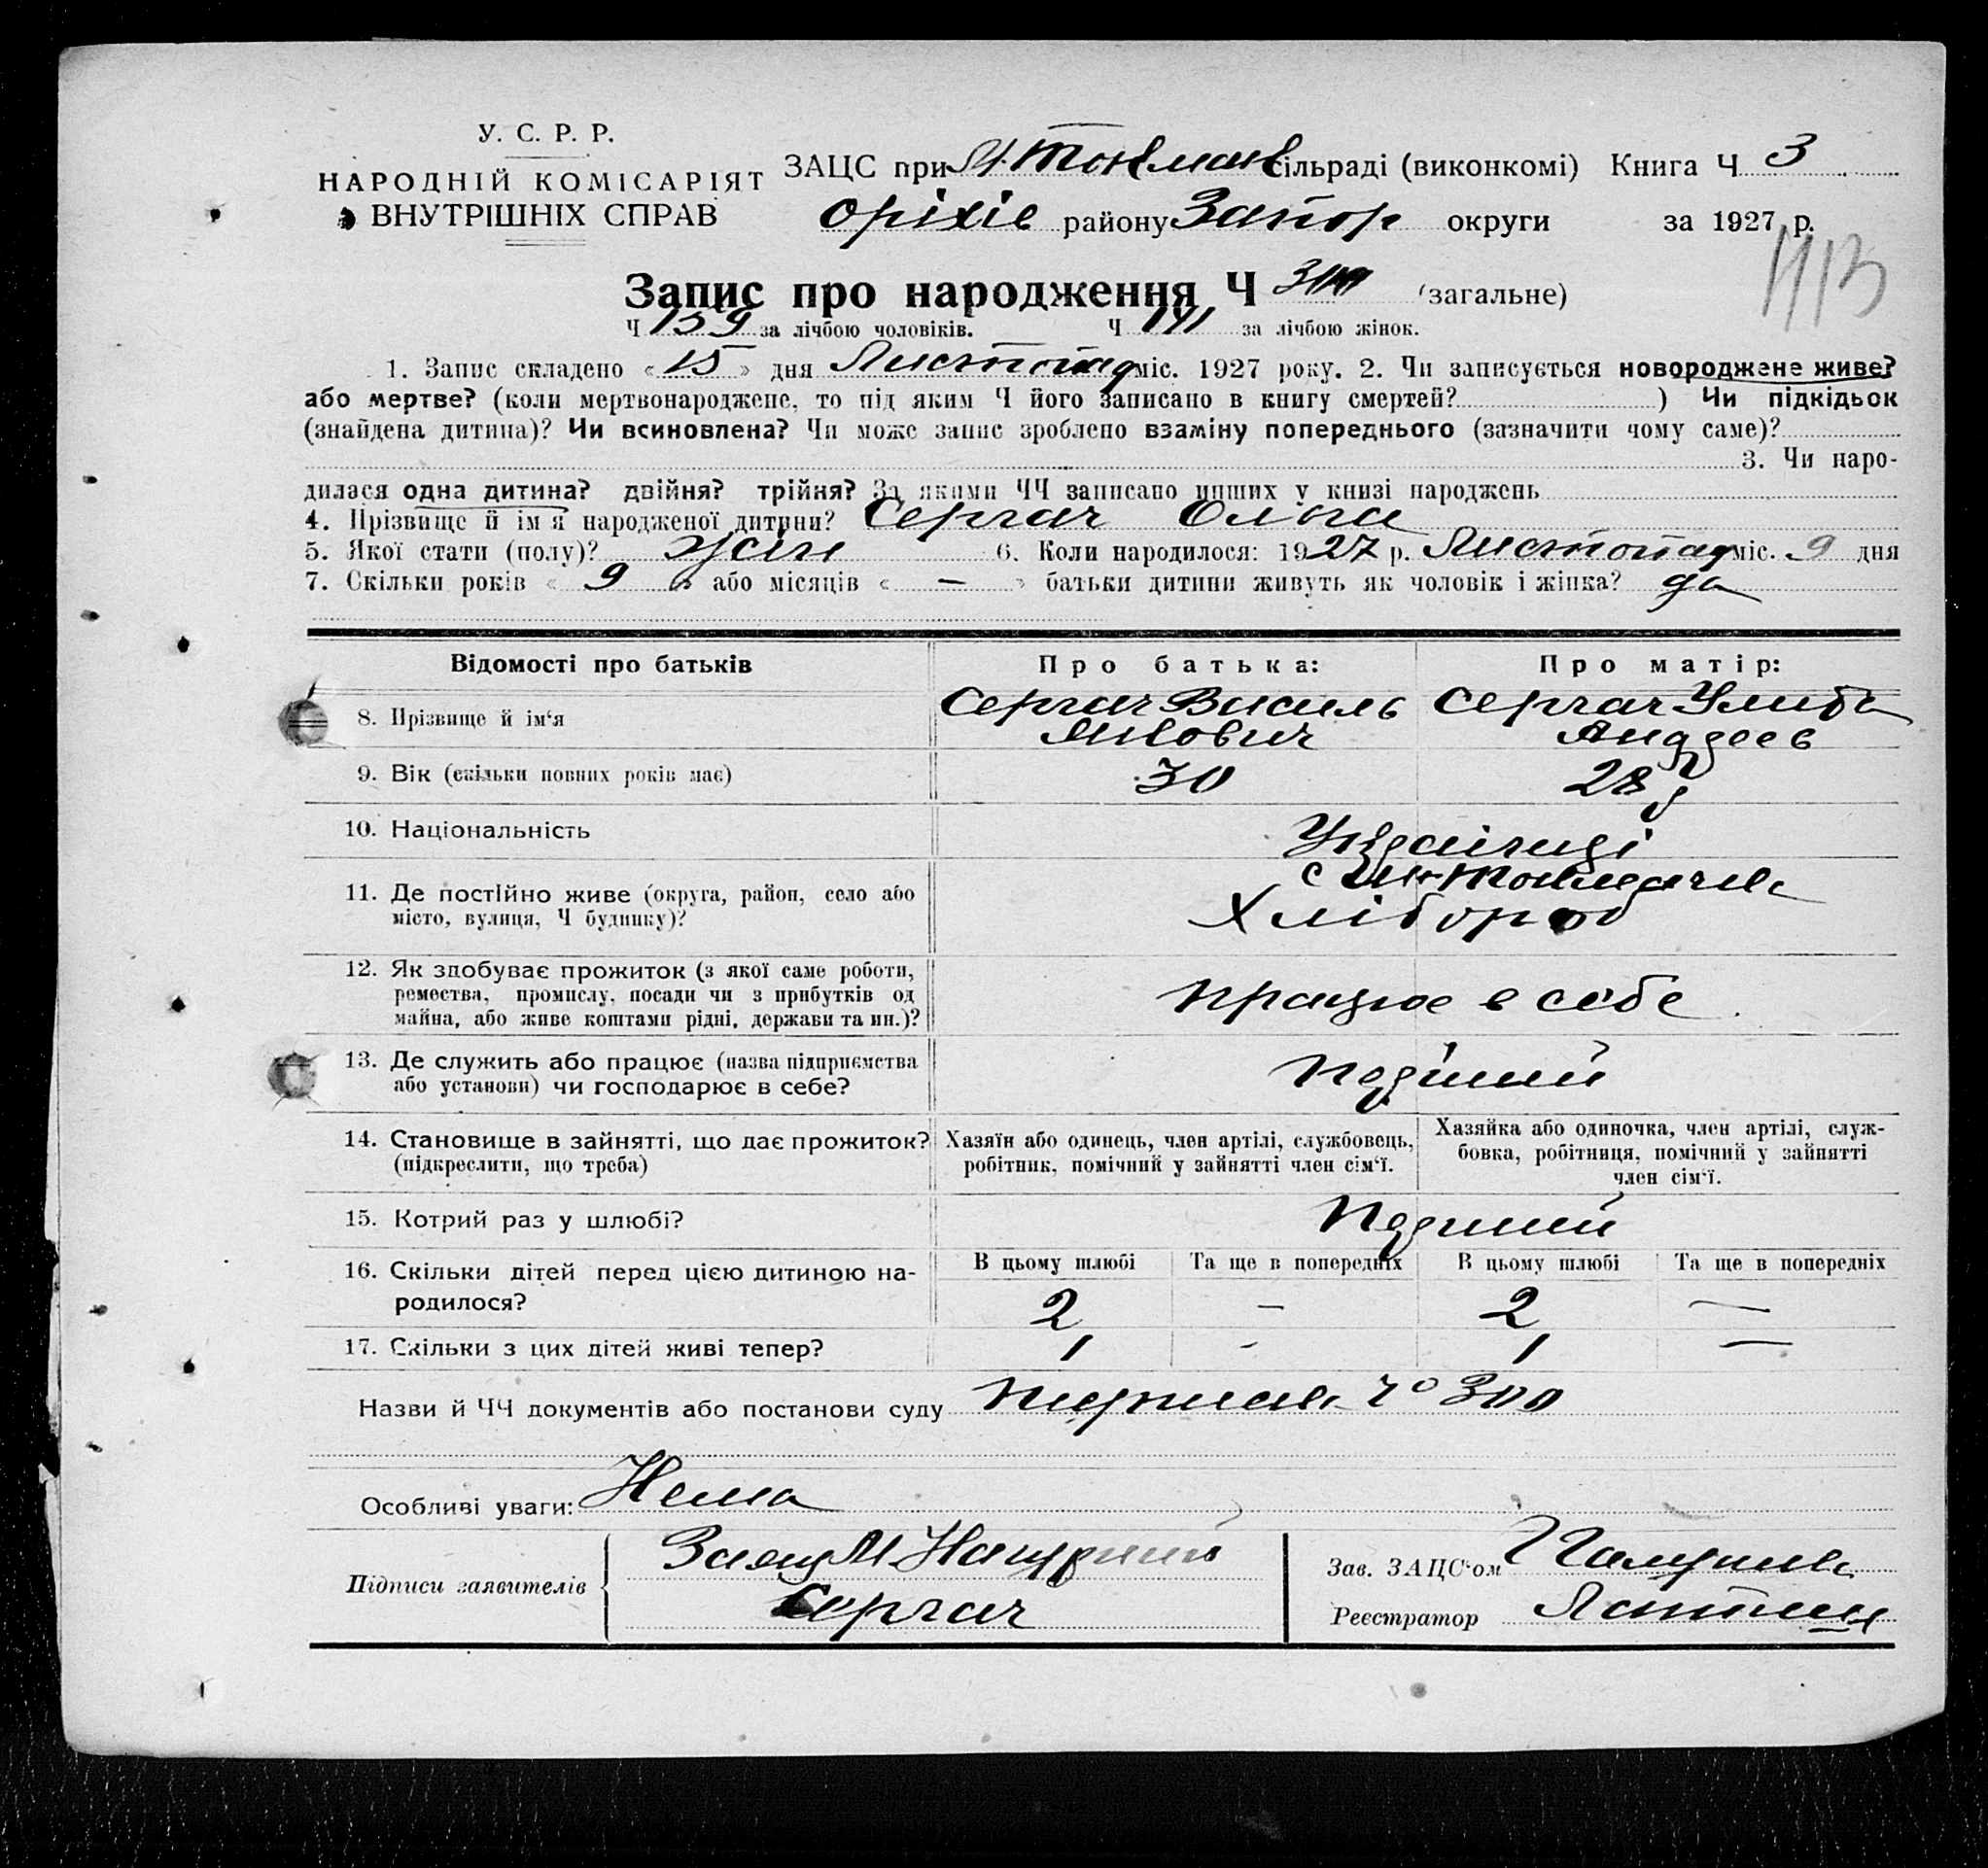 У. С. Р. Р.
НАРОДНІЙ КОМІСАРІЯТ
ВНУТРІШНІХ СПРАВ
ЗАЦС при М. Токмак сільраді (виконкомі) Книга Ч 3
Оріхів району Запор округи за 1927 р.
Запис про народження Ч 300 (загальне)
Ч 159 за лічбою чоловіків. Ч 141 за лічбою жінок.
1. Запис складено « 15 » дня Листопад міс. 1927 року. 2. Чи записується новороджене живе?
або мертве? (коли мертвонароджене, то під яким Ч його записано в книгу смертей? ) Чи підкідьок
(знайдена дитина)? Чи всиновлена? Чи може запис зроблено взаміну попереднього (зазначити чому саме)?
3. Чи наро-
дилася одна дитина? двійня? трійня? За якими ЧЧ записано инших у книзі народжень
4. Прізвище й ім я народженої дитини? Сергач Ольга
5. Якої стати (полу)? жін 6. Коли народилося: 1927 р. Листопад міс. 9 дня
7. Скільки років « 9 » або місяців « — » батьки дитини живуть як чоловік і жінка? да
Відомості про батьків Про батька: Про матір:
8. Прізвище й ім‘я Сергач Василь Сергач Улита
Андреев
9. Вік (скільки повних років має) 30 28
10. Національність Украінці
11. Де постійно живе (округа, район, село або
місто, вулиця, Ч будинку)? Хлібороб
12. Як здобуває прожиток (з якої саме роботи,
ремества, промислу, посади чи з прибутків од
майна, або живе коштами рідні, держави та ин.)? працює в себе
13. Де служить або працює (назва підприємства
або установи) чи господарює в себе?
14. Становище в зайнятті, що дає прожиток?
(підкреслити, що треба)
Хазяїн або одинець, член артілі, службовець,
робітник, помічний у зайнятті член сім‘ї.
Хазяйка або одиночка, член артілі, служ-
бовка, робітниця, помічний у зайнятті
член сім‘ї.
15. Котрий раз у шлюбі?
16. Скільки дітей перед цією дитиною на-
родилося?
В цьому шлюбі Та ще в попередніх В цьому шлюбі Та ще в попередніх
2 — 2 —
17. Скільки з цих дітей живі тепер? 1 - 1 —
Назви й ЧЧ документів або постанови суду 300
Особливі уваги: Нема
Підписи заявителів
Сергач
Зав. ЗАЦС‘ом
Реєстратор